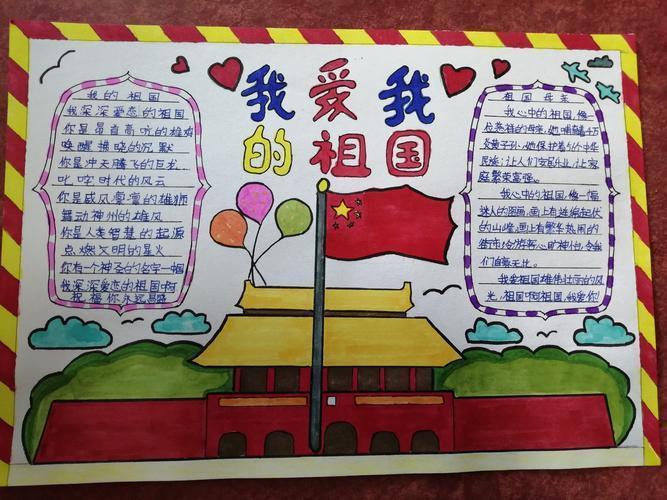 我爱我
的祖国
我的祖国
我深深爱恋的祖国
你是昂首高吭的雄鸡
唤醒拂晓的沉默
你是冲天腾飞的巨龙
叱咤时代的风云
你是威风凛凛的雄狮
舞动神州的雄风
你是人类智慧的起源
点燃文明的星火
你有一个神圣的名字一中国
我深深爱恋的祖国啊
祝福你永远昌盛
祖国母亲
我心中的祖国,像一
位慈祥的母亲,她哺育千万
炎黄子孙,她保护着5个中华
民族;让人们安居乐业,让家
庭繁荣富强。
我心中的祖国,像一幅
迷人的图画,画上有连绵起伏
的山峰,画上有繁华热闹的
街市,令游客心旷神怡,令我
们自豪无比。
我爱祖国雄伟壮丽的风
光,祖国啊祖国,我爱你!